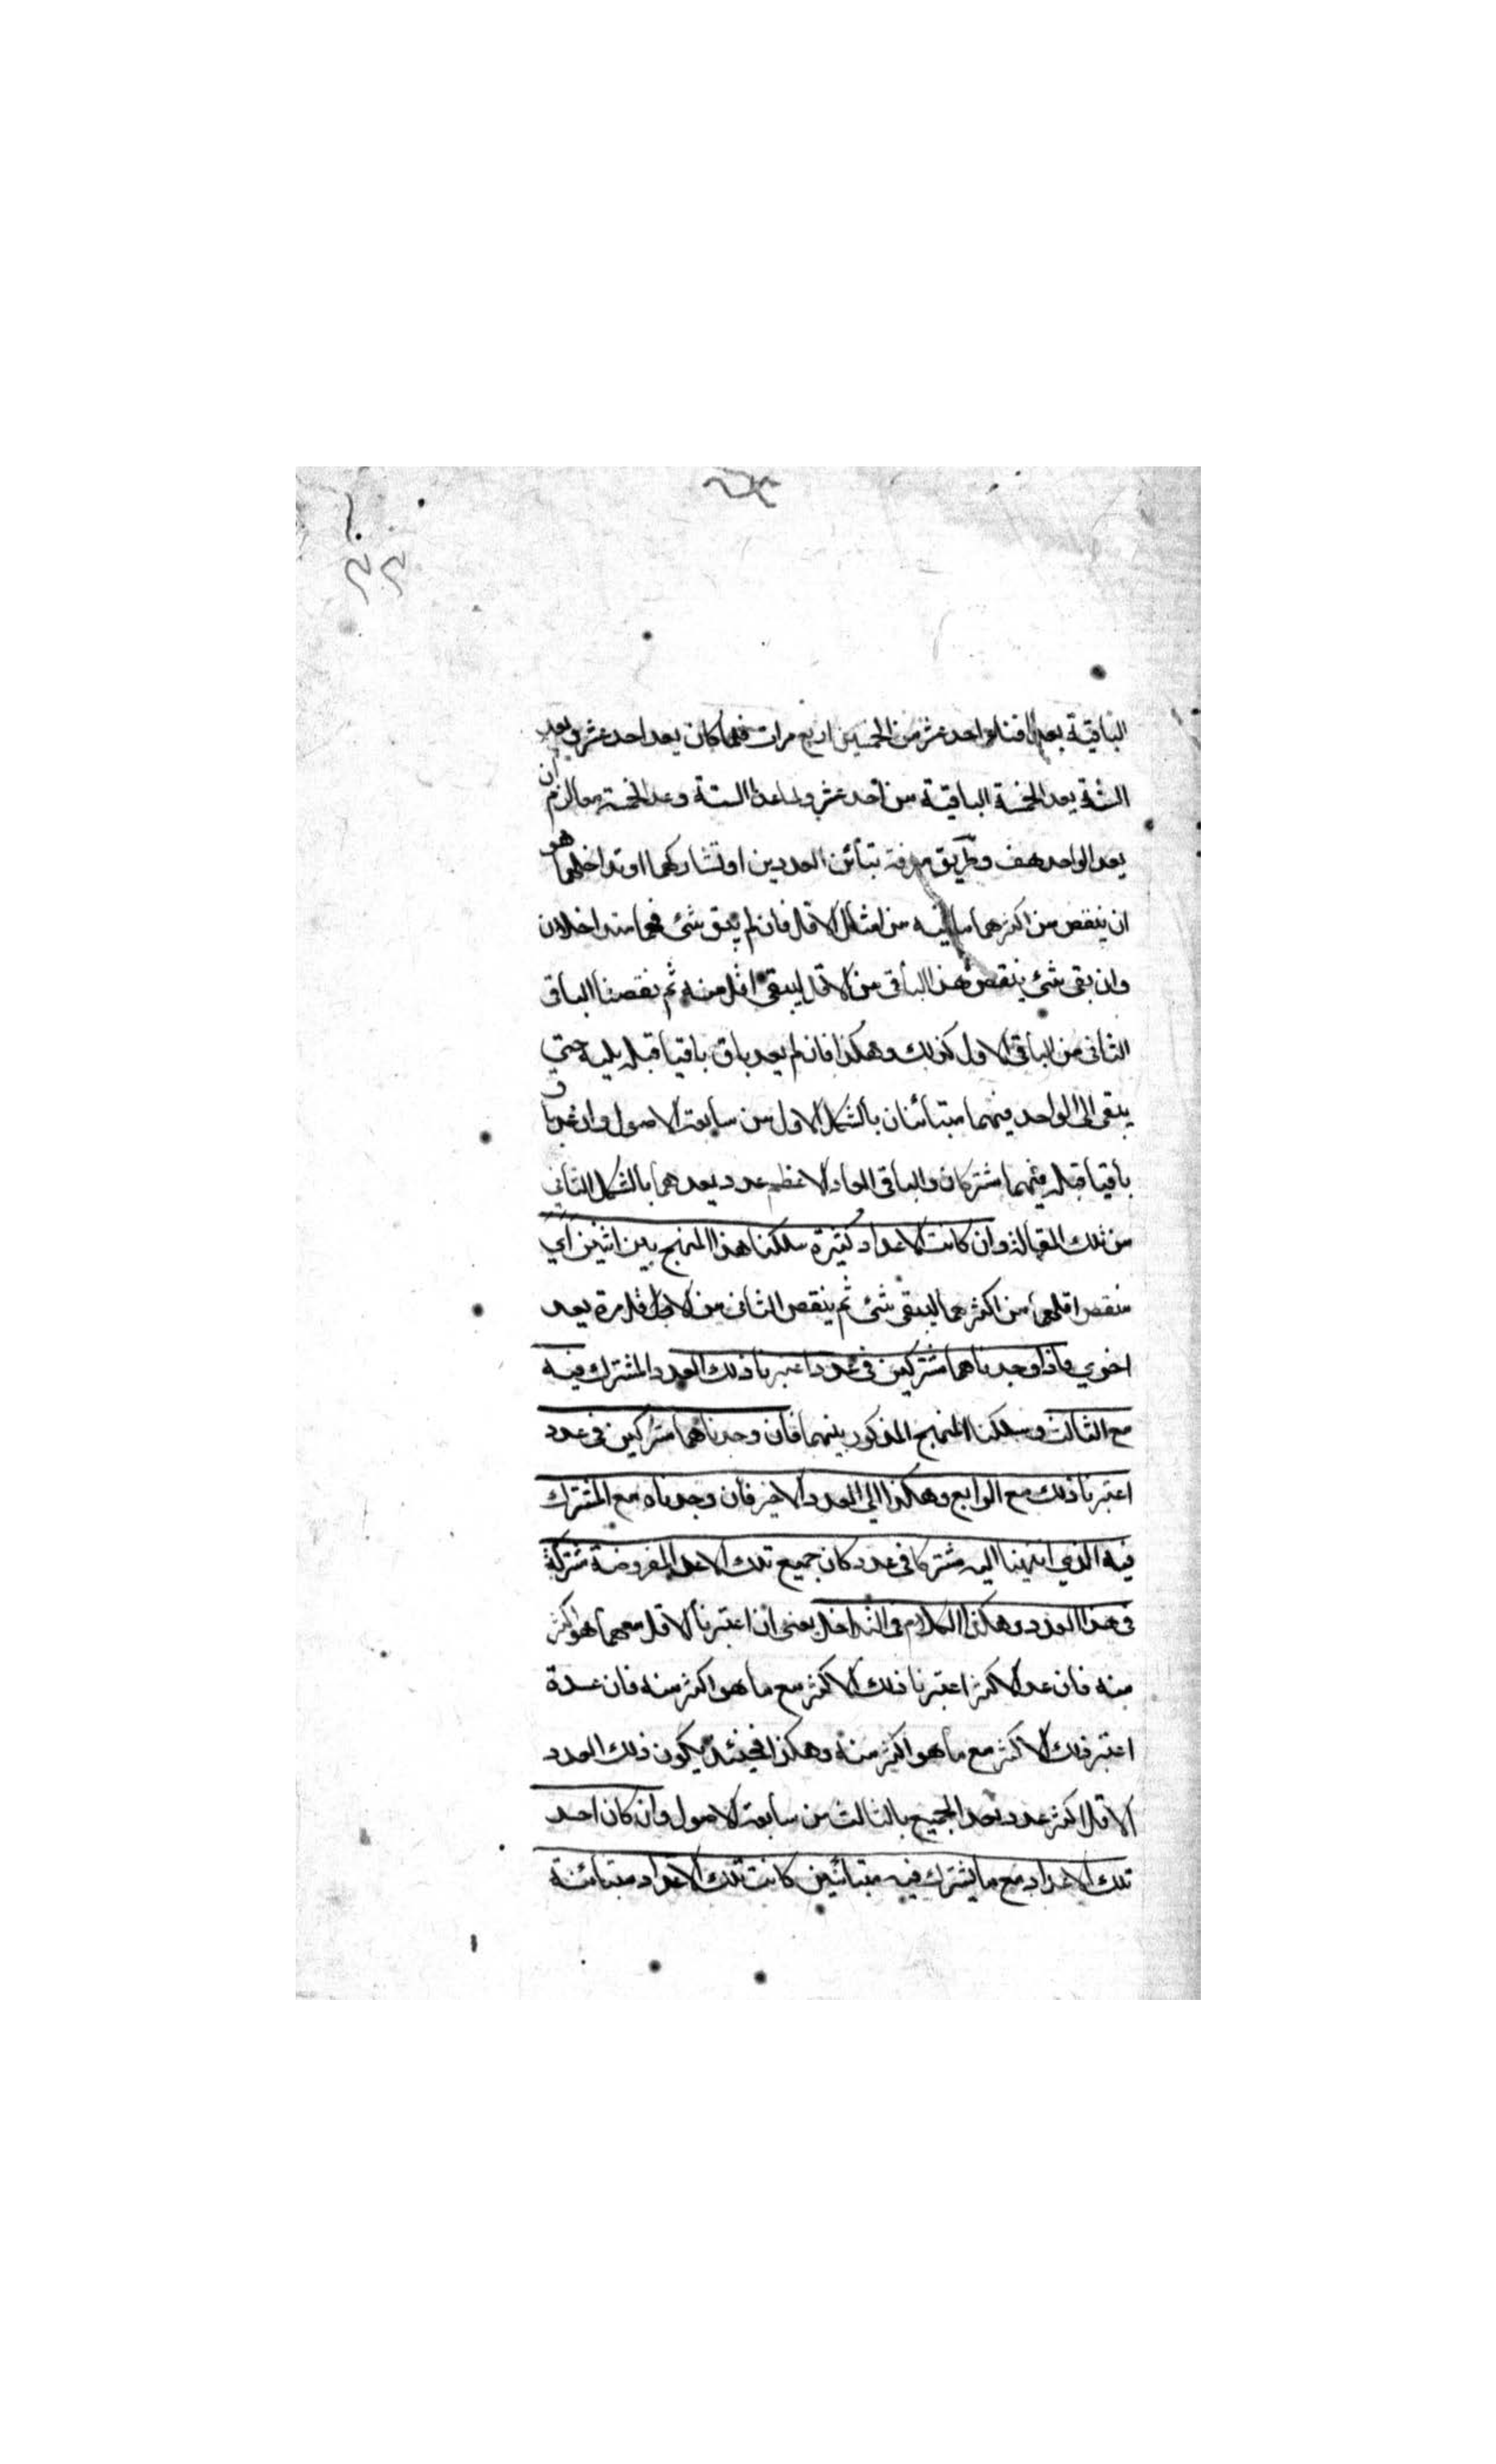 الباقية بعد افناء احد عشر من الخمسين اربع مرات فلما كان يعد احد عشر ويعد
الستة يعد الخمسة الباقية من احد عشر ولما عد الستة وعد الخمسة معا لزم ان
يعد الواحد هف وطريق معرفة تبائن العددين او تشاركهما او تداخلهما هو
ان ينقص من اكثرهما ما فيه من امثال الاقل فان لم يبق شئ فهما متداخلان
وان بقى شئ ينقص هذا الباقى من الاقل ليبقى اقل منه ثم نقصنا الباقى
الثانى من الباقى الاول كذلك وهكذا فان لم يعد باق باقيا قبله يليه حتي
يبقى الى الواحد فهما متبائنان بالشكل الاول من سابعة الاصول وان عد باق
باقيا قبله فهما مشتركان والباقى العاد لاعظم عدد يعدهما بالشكل الثاني
من تلك المقالة وان كانت الاعداد كثيرة سلكنا هذا المنهج بين اثنين اي
ننقص اقلهما من اكثرهما ليبقى شئ ثم ينقص الثانى من الاول مرة بعد
اخري فاذا وجدناهما مشتركين فى عدد اعتبرنا ذلك العدد المشترك فيه
مع الثالث وسلكنا المنهج المذكور بينهما فان وجدناهما مشتركين فى عدد
اعتبرنا ذلك مع الرابع وهكذا الي العدد الاخير فان وجدناه مع المشترك
فيه الذي انتهينا اليه مشتركا فى عدد كان جميع تلك الاعداد المفروضة مشتركة
فى هذا العدد وهكذا الكلام فى التداخل يعنى ان اعتبرنا الاقل مع ما هو اكثر
منه فان عد الاكثر اعتبرنا ذلك الاكثر مع ما هو اكثر منه فان عده
اعتبر ذلك الاكثر مع ما هو اكثر منه وهكذا فحينئذ يكون ذلك العدد
الاقل اكثر عدد يعد الجميع بالثالث من سابعة الاصول وان كان احد
تلك الاعداد مع ما يشترك فيه متبائنين كانت تلك الاعداد متبائنة